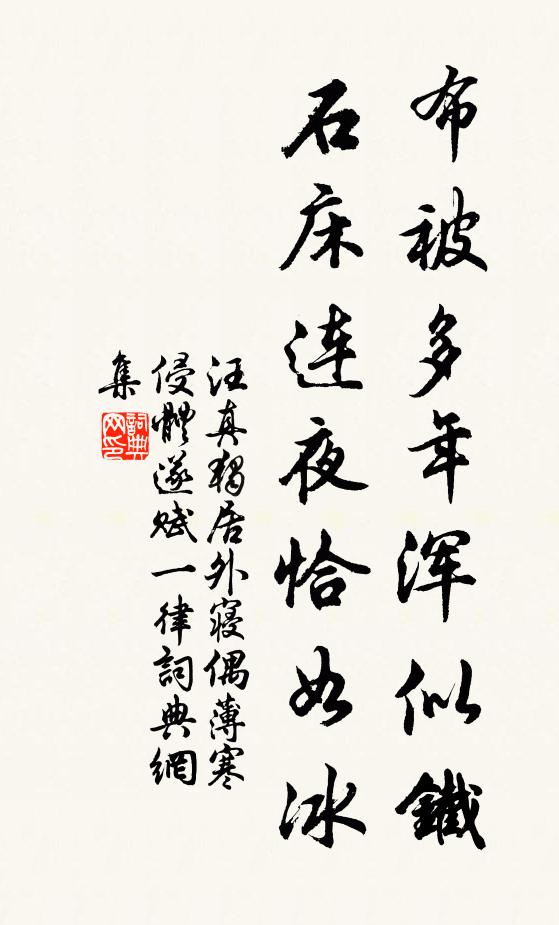 布被多年浑似鐵
石床連夜恰如冰
汪真獨居外寢偶薄寒
侵體遂赋一律詞典網
集
詞典
网印